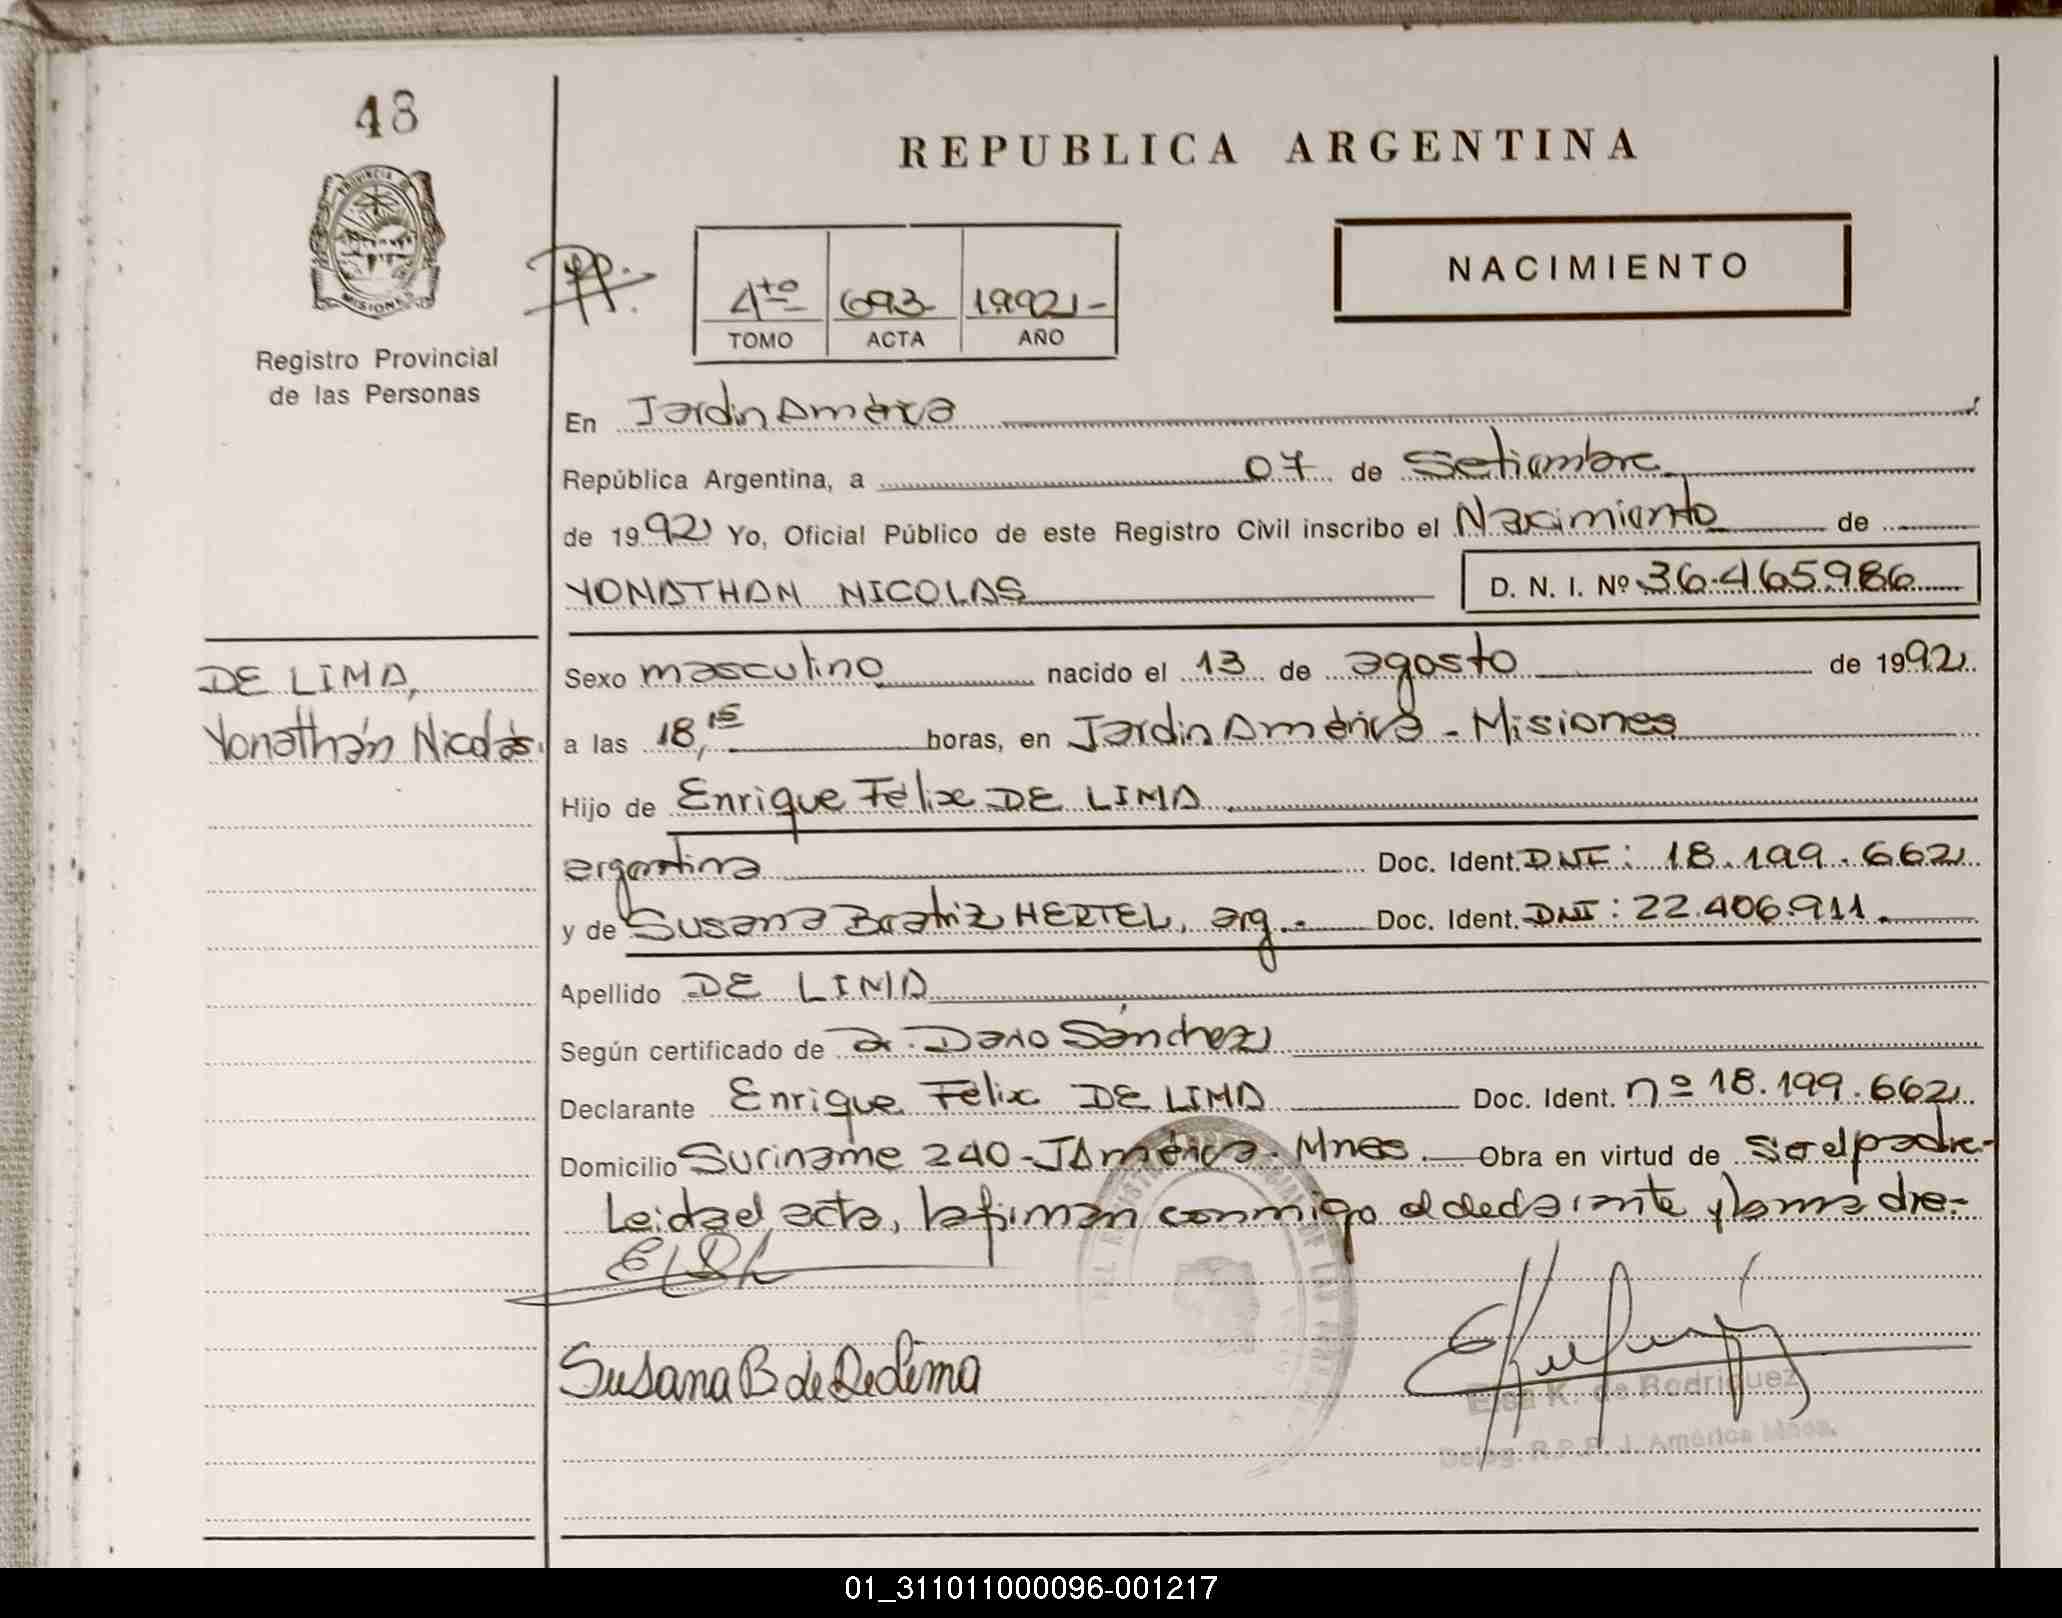 48
REPUBLICA ARGENTINA
PROVINCIA DE
MISIONES
NACIMIENTO
4to 693 1992-
TOMO ACTA AÑO
Registro Provincial
de las Personas
En Jardín América
República Argentina, a 07 de Setiembre
de 1992 Yo, Oficial Público de este Registro Civil inscribo el Nacimiento de
YONATHAN NICOLAS D. N. I. Nº 36.465.986
DE LIMA,
Yonathán Nicolás.
Sexo masculino nacido el 13 de agosto de 1992
a las 18,15 horas, en Jardín América - Misiones
Hijo de Enrique Félix DE LIMA
argentina Doc. Ident. DNI: 18.199.662
y de Susana Beatriz HERTEL, arg.- Doc. Ident. DNI: 22.406.911.
Apellido DE LIMA
Según certificado de Dr. Darío Sánchez
Declarante Enrique Félix DE LIMA Doc. Ident. nº 18.199.662
Domicilio Suriname 240 - J América - Mnes. Obra en virtud de ser el padre-
Leída el acta, la firman conmigo el declarante y la madre.-
Susana B de De Lima
Elsa K. de Rodriguez
Deleg. R.P.P. J. América Mnes.
01_311011000096-001217